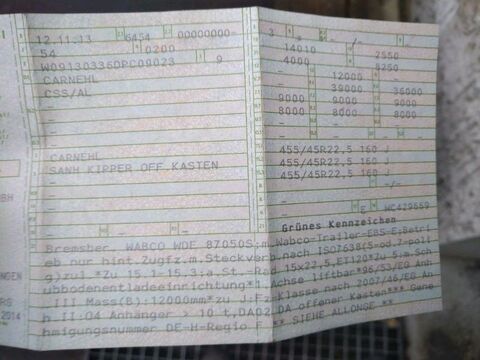 12.11.13 6454 00000000- 3 -
54 0200 14010 - 2550
W09130336DPC09023 9 4000 8250
CARNEHL - 12000 -
CSS/AL - 39000 36000
- 9000 9000 9000
- 8000 8000 8000
-
CARNEHL 455/45R22,5 160 J
SANH KIPPER OFF.KASTEN 455/45R22,5 160 J
- 455/45R22,5 160 J
- -/-
BH
- E WC429659
Grünes Kennzeichen
Bremsber. WABCO WDF 87050S;m.Wabco-Trailer-EBS-E;Betri
eb nur hint.Zugfz.m.Steckverb.nach ISO7638(5-od.7-poli
NGEN
g)zul.*Zu 15.1-15.3:a.St.-Rad 15x22,5,ET120*Zu 5:m.Sch
ubbodenentladeeinrichtung*1.Achse liftbar*96/53/EG Anh
RS
III Mass(B):12000mm*zu J:Fz-Klasse nach 2007/46/EG An
2014
h II:O4 Anhänger > 10 t,DA02 DA offener Kasten*** Gene
hmigungsnummer DE-H-Regio F ** SIEHE ALLONGE **